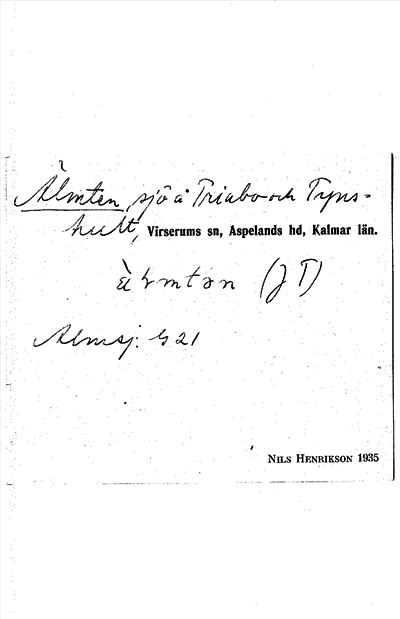 Älmten, sjö å Triabo och Tyns-
hult, Virserums sn, Aspelands hd, Kalmar län.
(J T)
Almsj. G 21
NILS HENRIKSON 1935